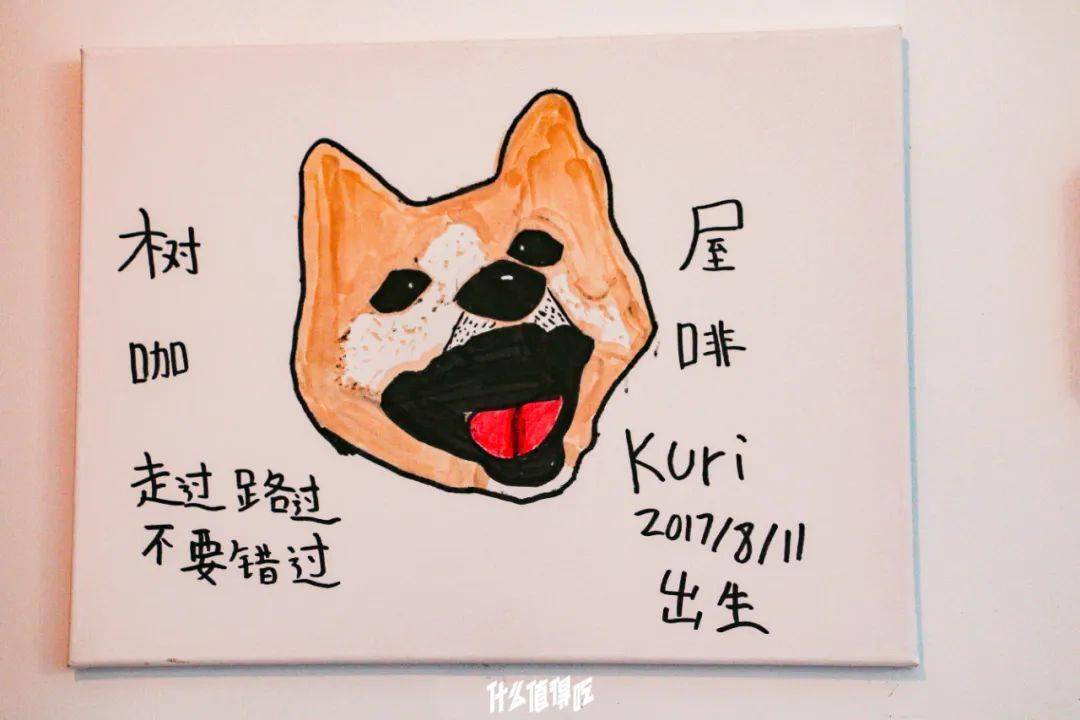 树屋
咖啡
走过路过
不要错过
Kuri
2017/8/11
出生
什么值得吃